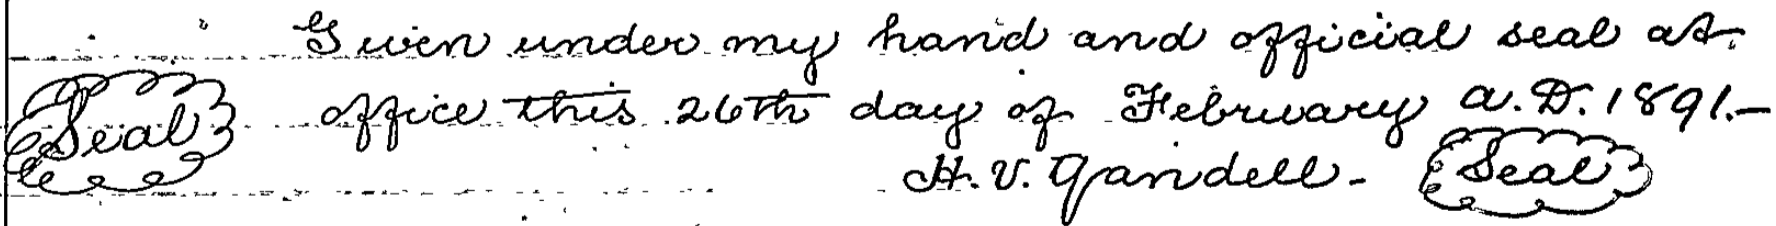 Given under my hand and official seal at
Seal office this 26th day of February A.D. 1891.-
H. V. Yandell - Seal